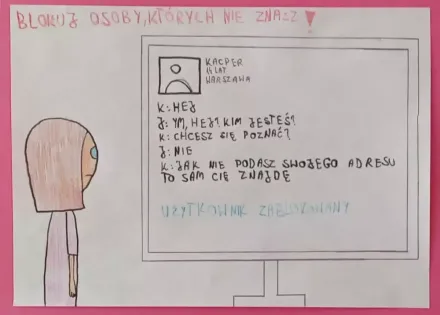 BLOKUJ OSOBY, KTÓRYCH NIE ZNASZ!
KACPER
15 LAT
WARSZAWA
K: HEJ
J: YM, HEJ? KIM JESTEŚ?
K: CHCESZ SIĘ POZNAĆ?
J: NIE
K: JAK NIE PODASZ SWOJEGO ADRESU
TO SAM CIĘ ZNAJDĘ
UŻYTKOWNIK ZABLOKOWANY